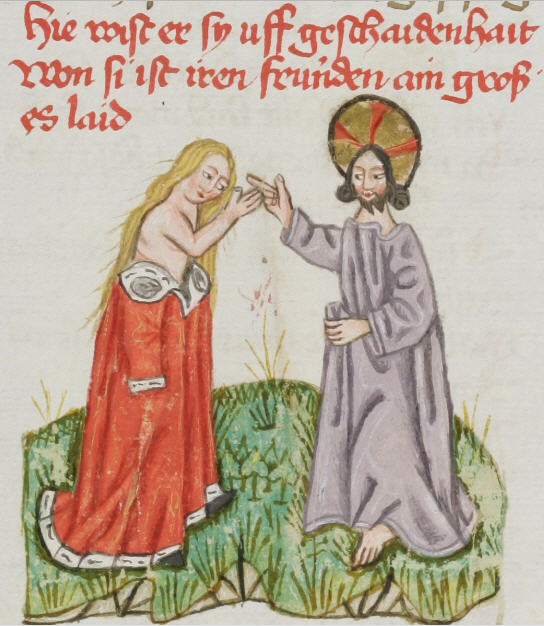 Hie wist er sy uff geschaidenhait
Won si ist iren frúnden ain gross
es laid